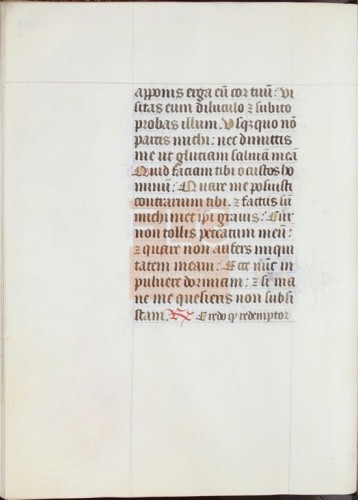 apponis erga eū cor tuū: Vi
sitas eum diluculo ⁊ subito
probas illum. Vsqȝquo nō
parcis michi: nec dimittis
me ut glutiam saliuā meā
Quid faciam tibi o custos ho
minū: Quare me posuisti
contrarium tibi. ⁊ factus sū
michimet ipi grauis: Cur
non tollis peccatum meū:
⁊ quare non aufers iniqui
tatem meam: Ecce nūc in
puluere dormiam: ⁊ si ma
ne me quesieris non subsi
stam. R Credo qͥ redemptor